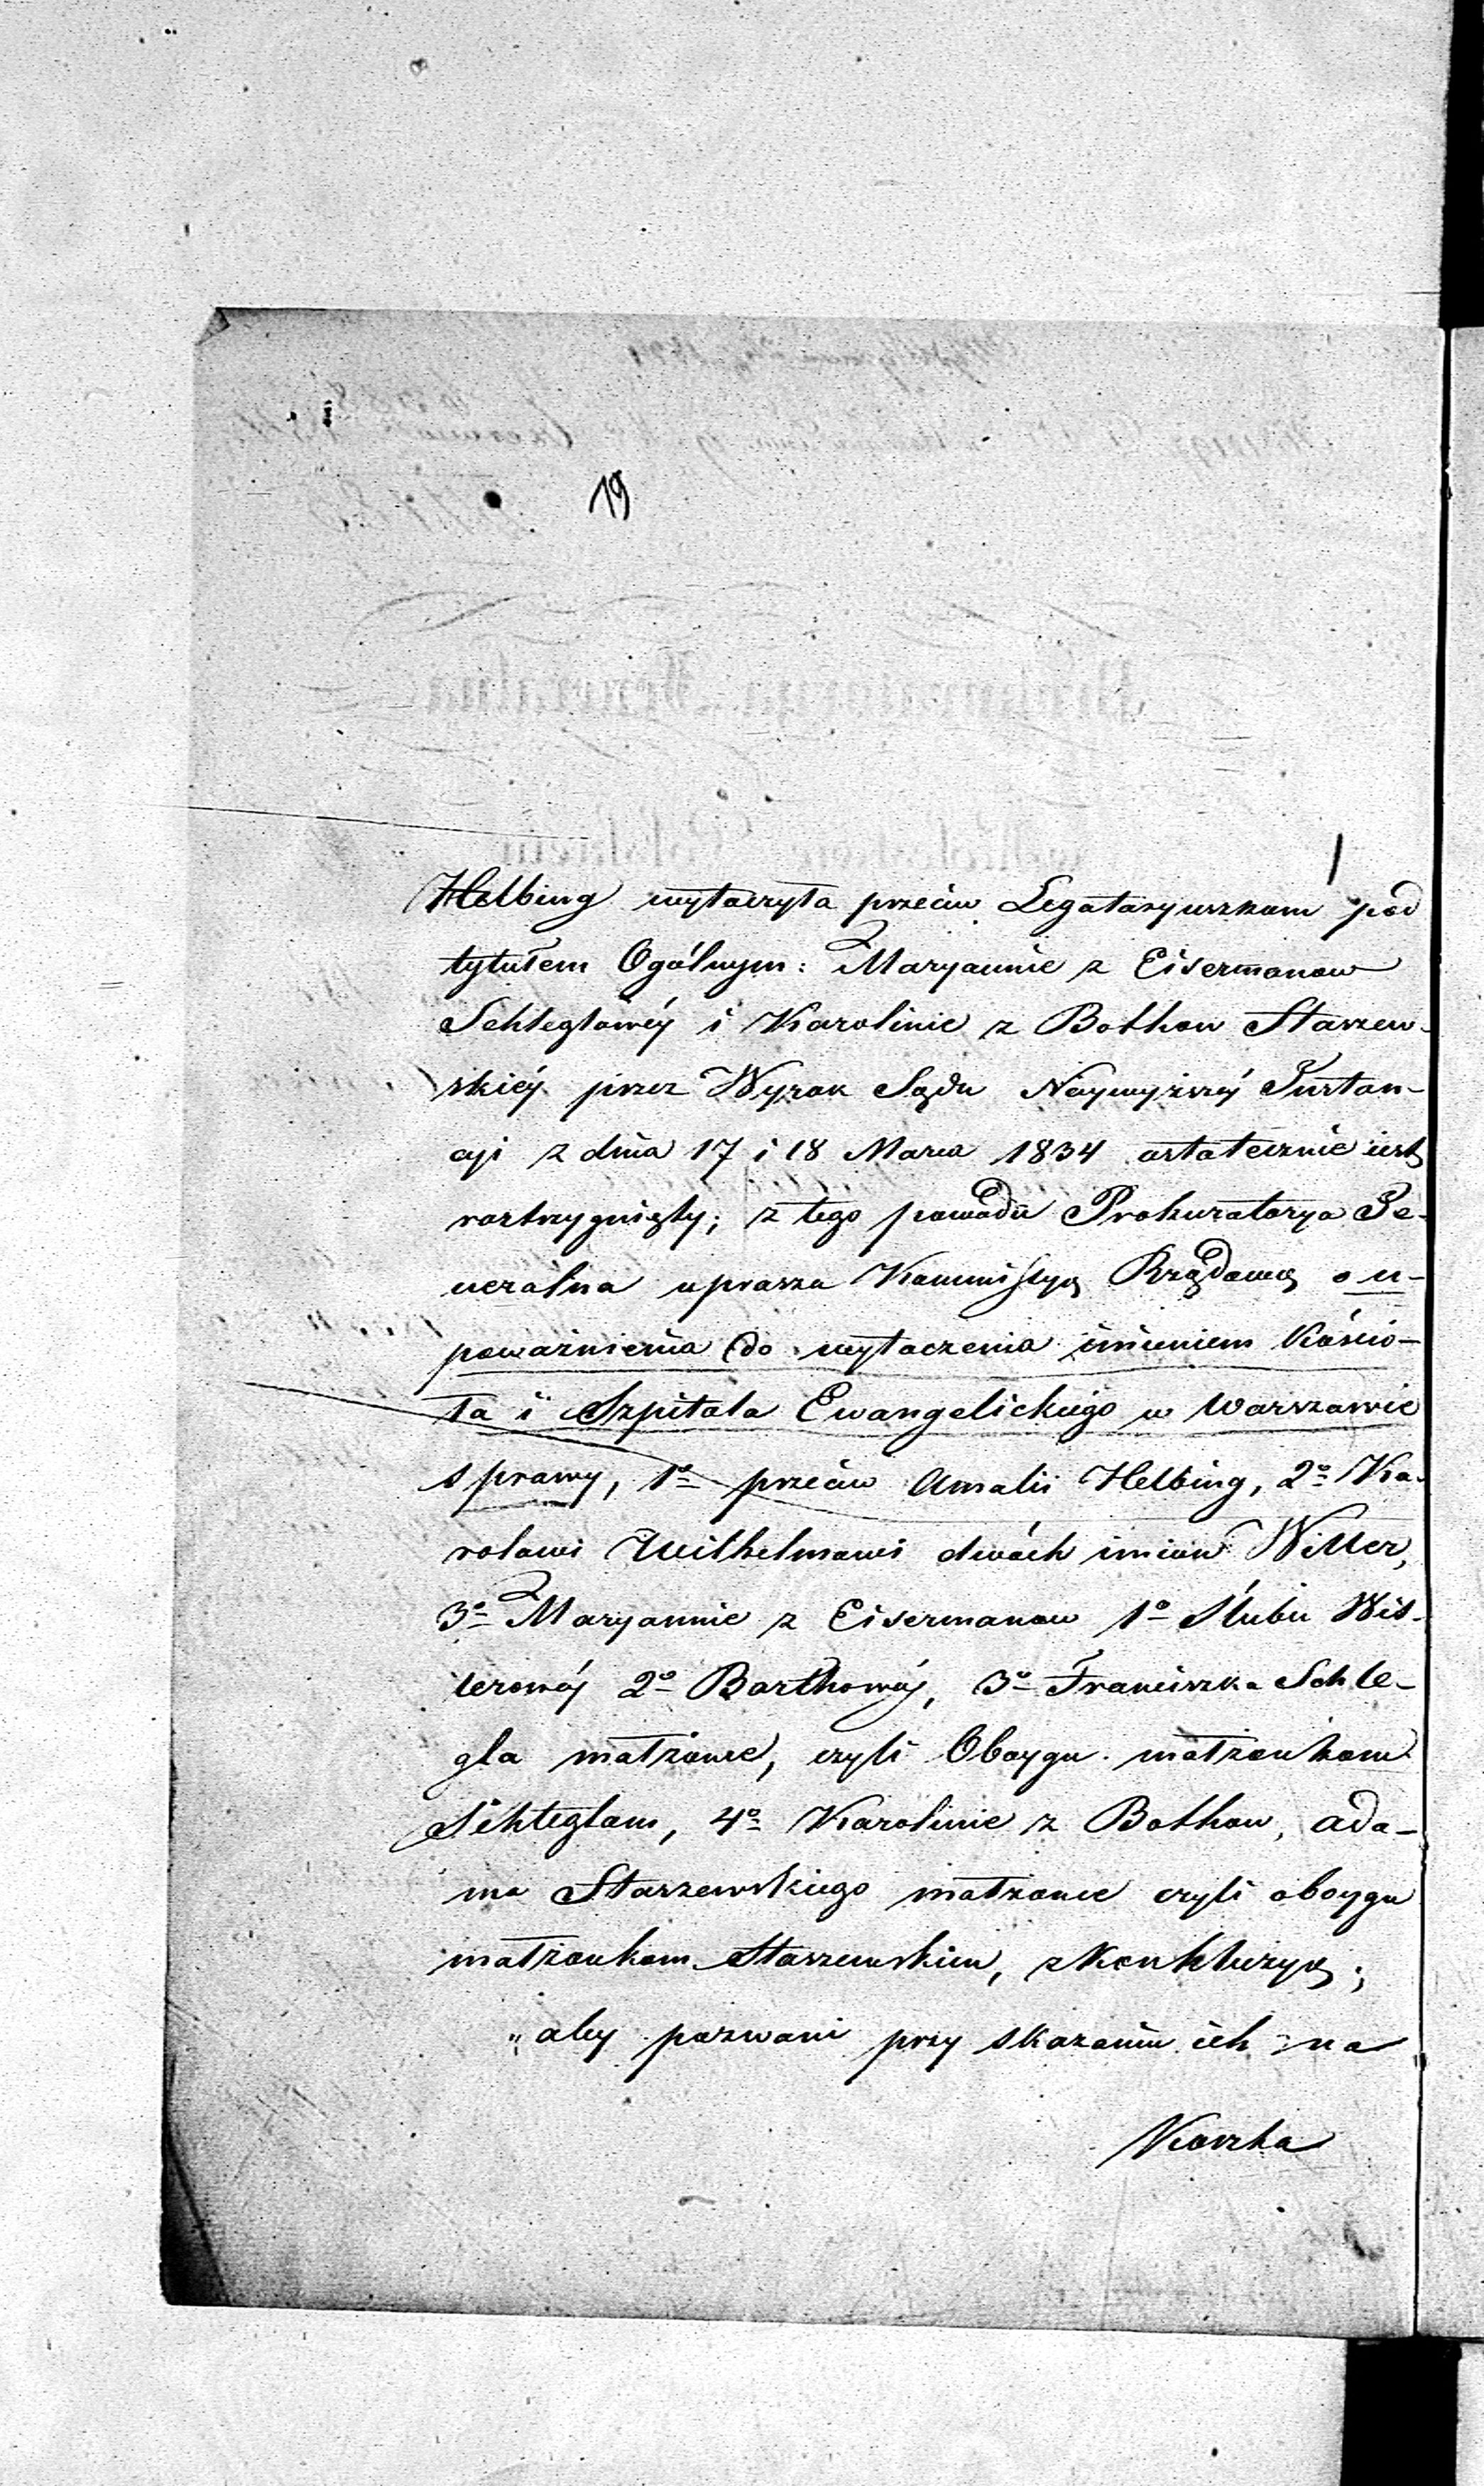 19
Helbing wytoczyła przeciw Legataryuszkom pod
tytułem Ogólnym: Maryannie z Eisermanow
Schleglowéy i Karolinie z Bothow Staszew-
skiéy przez Wyrok Sądu Naywyższéy Instan-
cyi z dnia 17 i 18 Marca 1834 ostatecznie iest
rostrzygnięty; z tego powodu Prokuratorya Ge-
neralna uprasza Kommissyą Rządową o u-
poważnienia do wytoczenia imieniem Kościo-
ła i Szpitala Ewangelickiego w Warszawie
sprawy, 1º przeciw Amalii Helbing, 2º Ka-
rolowi Wilhelmowi dwóch imion Witter,
3º Maryannie z Eisermanow 1º Ślubu Wit-
terowéy 2º Barthowéy, 3º Franciszka Schle-
gla małżonce, czyli Oboygu małżonkom
Schleglom, 4º Karolinie z Bothow, Ada-
ma Staszewskiego małżonce czyli oboygu
małżonkom Staszewskim, z Konkluzyą;
„aby pozwani przy skazaniu ich na
Koszta